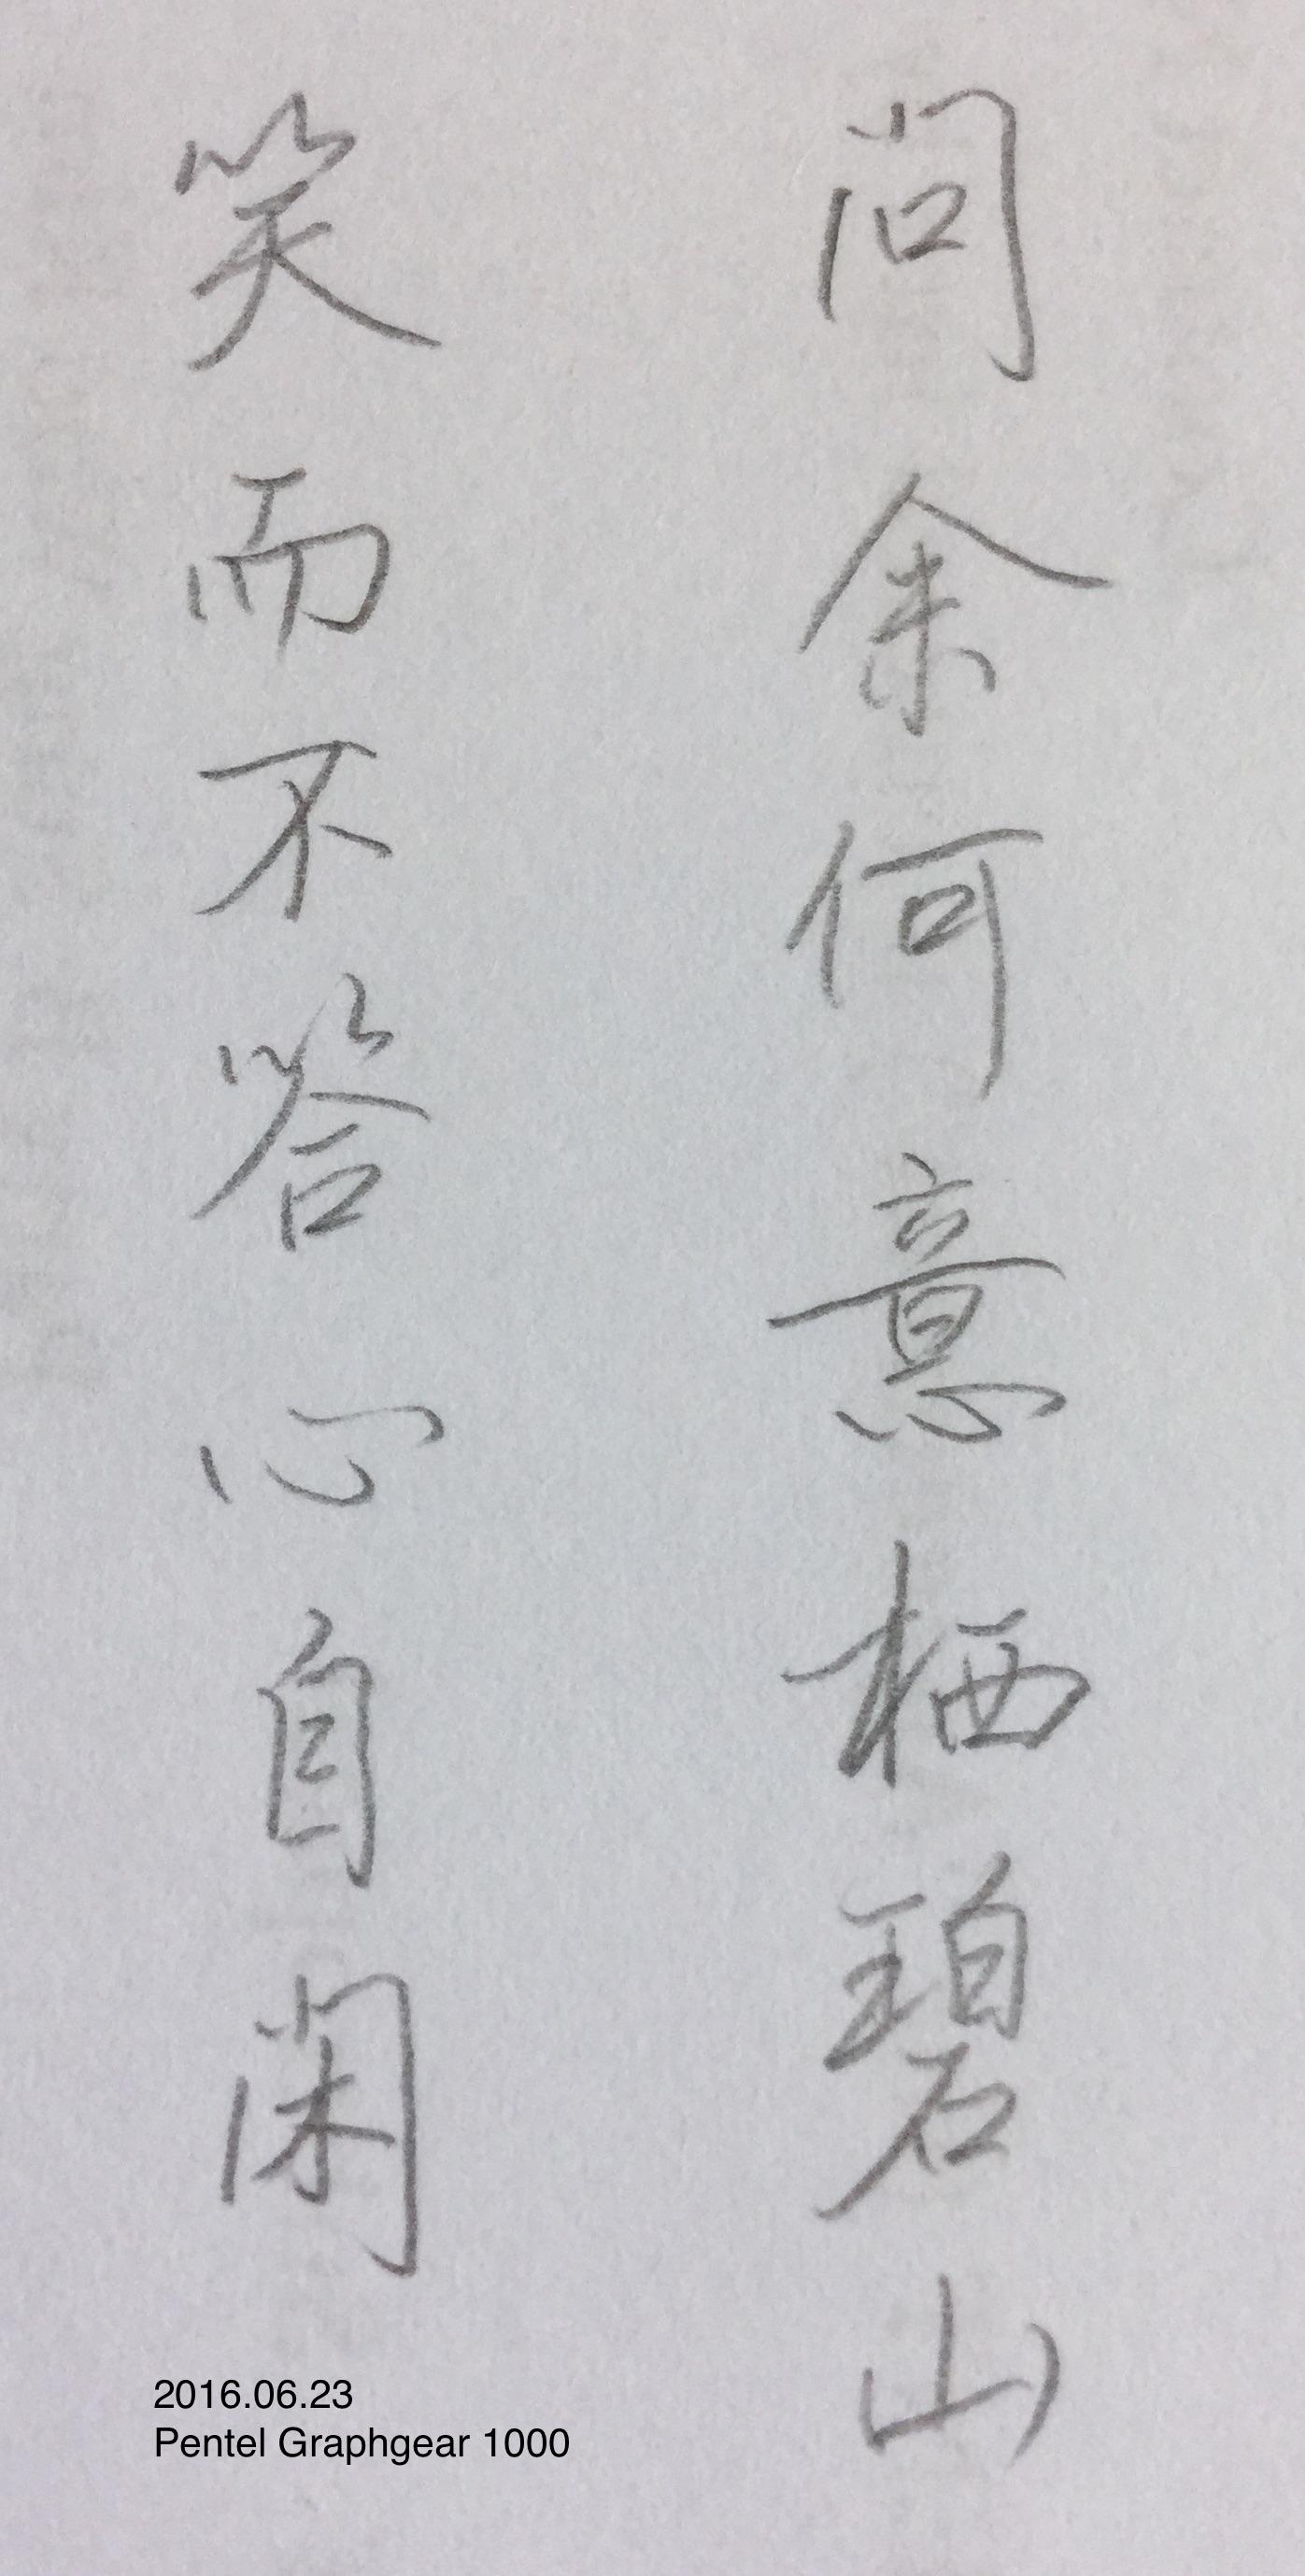 问余何意栖碧山
笑而不答心自闲
2016.06.23
Pentel Graphgear 1000